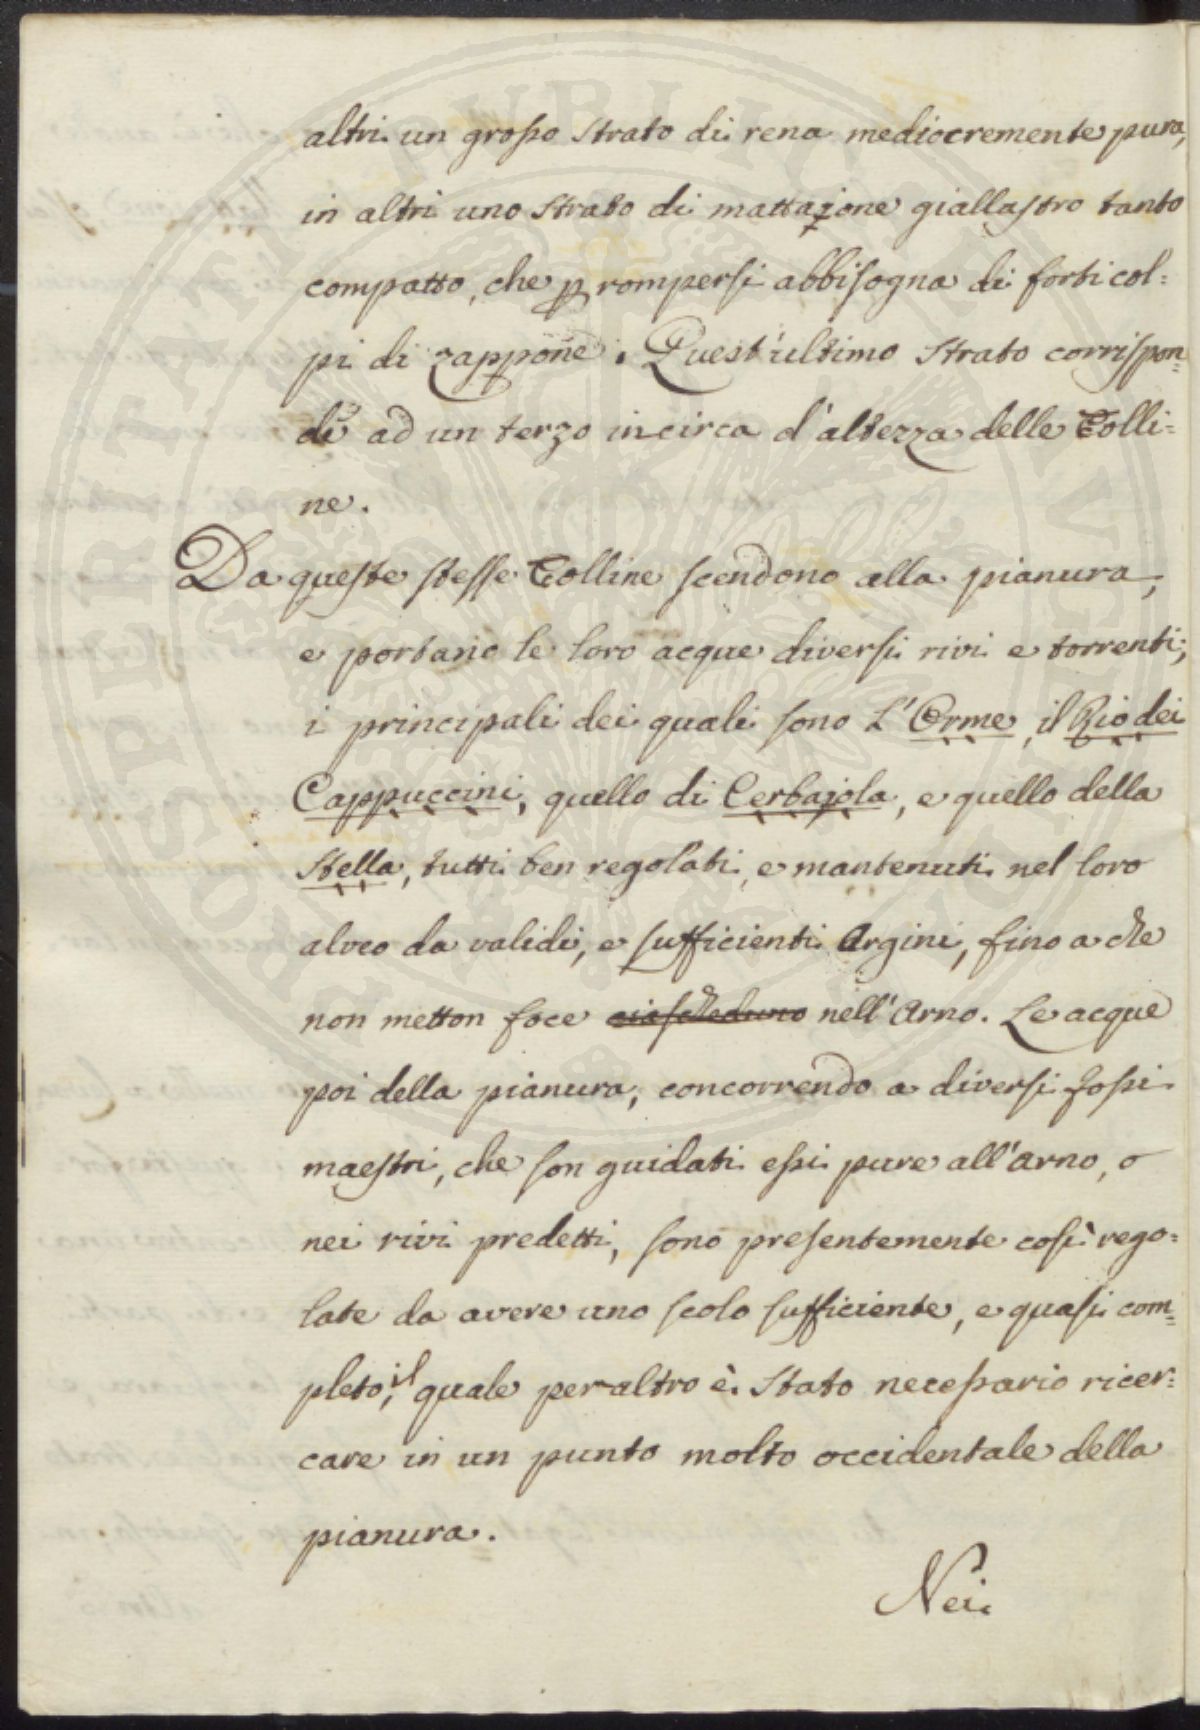 altri un grosso strato di rena mediocremente pura,
in altri uno strato di mattajone giallastro tanto
compatto, che p rompersi abbisogna di forti col=
pi di zappone. Quest'ultimo strato corrispon=
de ad un terzo incirca d'altezza delle Colli=
ne.
Da queste stesse Colline scendono alla pianura,
e portano le loro acque diversi rivi e torrenti;
i principali dei quali sono L'Orme, il Rio dei
Cappuccini, quello di Cerbajola, e quello della
Stella, tutti ben regolati, e mantenuti nel loro
alveo da validi, e sufficienti Argini, fino a che
non metton foce ciascheduno nell'Arno. Le acque
poi della pianura, concorrendo a diversi fossi
maestri, che son guidati essi pure all'Arno, o
nei rivi predetti, sono presentemente così rego=
late da avere uno scolo sufficiente, e quasi com=
pleto; il quale peraltro è stato necessario ricer=
care in un punto molto occidentale della
pianura.
Nei
PROSPERITATI PUBLICAE AUGENDAE